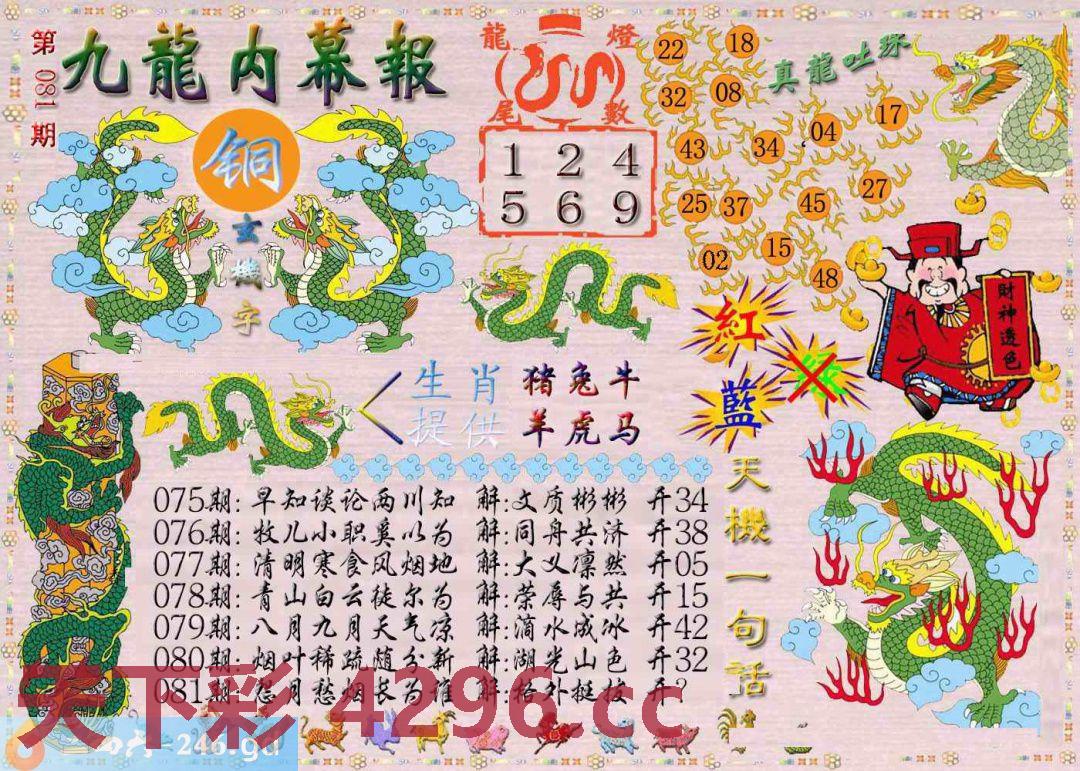 第081期
九龍内幕報
铜
玄機字
龍燈
尾數
1 2 4
5 6 9
真龍吐珠
22 18
32 08
17
43 34 04
25 37 45 27
02 15 48
紅
藍
財神透色
生肖 猪兔牛
提供 羊虎马
天機一句话
075期: 早知谈论两川知 解:文质彬彬 开34
076期: 牧儿小职莫以为 解:同舟共济 开38
077期: 清明寒食风烟地 解:大义凛然 开05
078期: 青山白云徒尔为 解:荣辱与共 开15
079期: 八月九月天气凉 解:滴水成冰 开42
080期: 烟叶稀疏随分新 解:湖光山色 开32
081期: 怨月愁烟长为谁 解:格外挺拔 开?
天下彩 4296.cc
246.gd